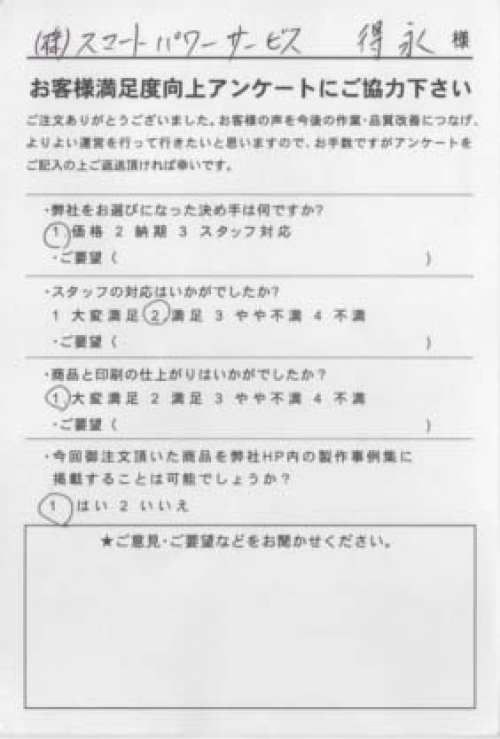 (株)スマートパワーサービス 得永 様
お客様満足度向上アンケートにご協力下さい
ご注文ありがとうございました。お客様の声を今後の作業・品質改善につなげ、
よりよい運営を行って行きたいと思いますので、お手数ですがアンケートを
ご記入の上ご返送頂ければ幸いです。
・弊社をお選びになった決め手は何ですか?
1 価格 2 納期 3 スタッフ対応
・ご要望 ( )
・スタッフの対応はいかがでしたか?
1 大変満足 2 満足 3 やや不満 4 不満
・ご要望 ( )
・商品と印刷の仕上がりはいかがでしたか?
1 大変満足 2 満足 3 やや不満 4 不満
・ご要望 ( )
・今回御注文頂いた商品を弊社HP内の製作事例集に
掲載することは可能でしょうか?
1 はい 2 いいえ
★ご意見・ご要望などをお聞かせください。